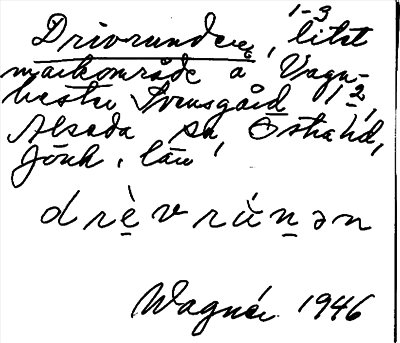 1-3
Drivrunden, litet
markområde å Vagn-
hester Tomsgård 1 2,
Alseda sn, Östra hd,
Jönk. län
drèvrùnən
Wagnér 1946